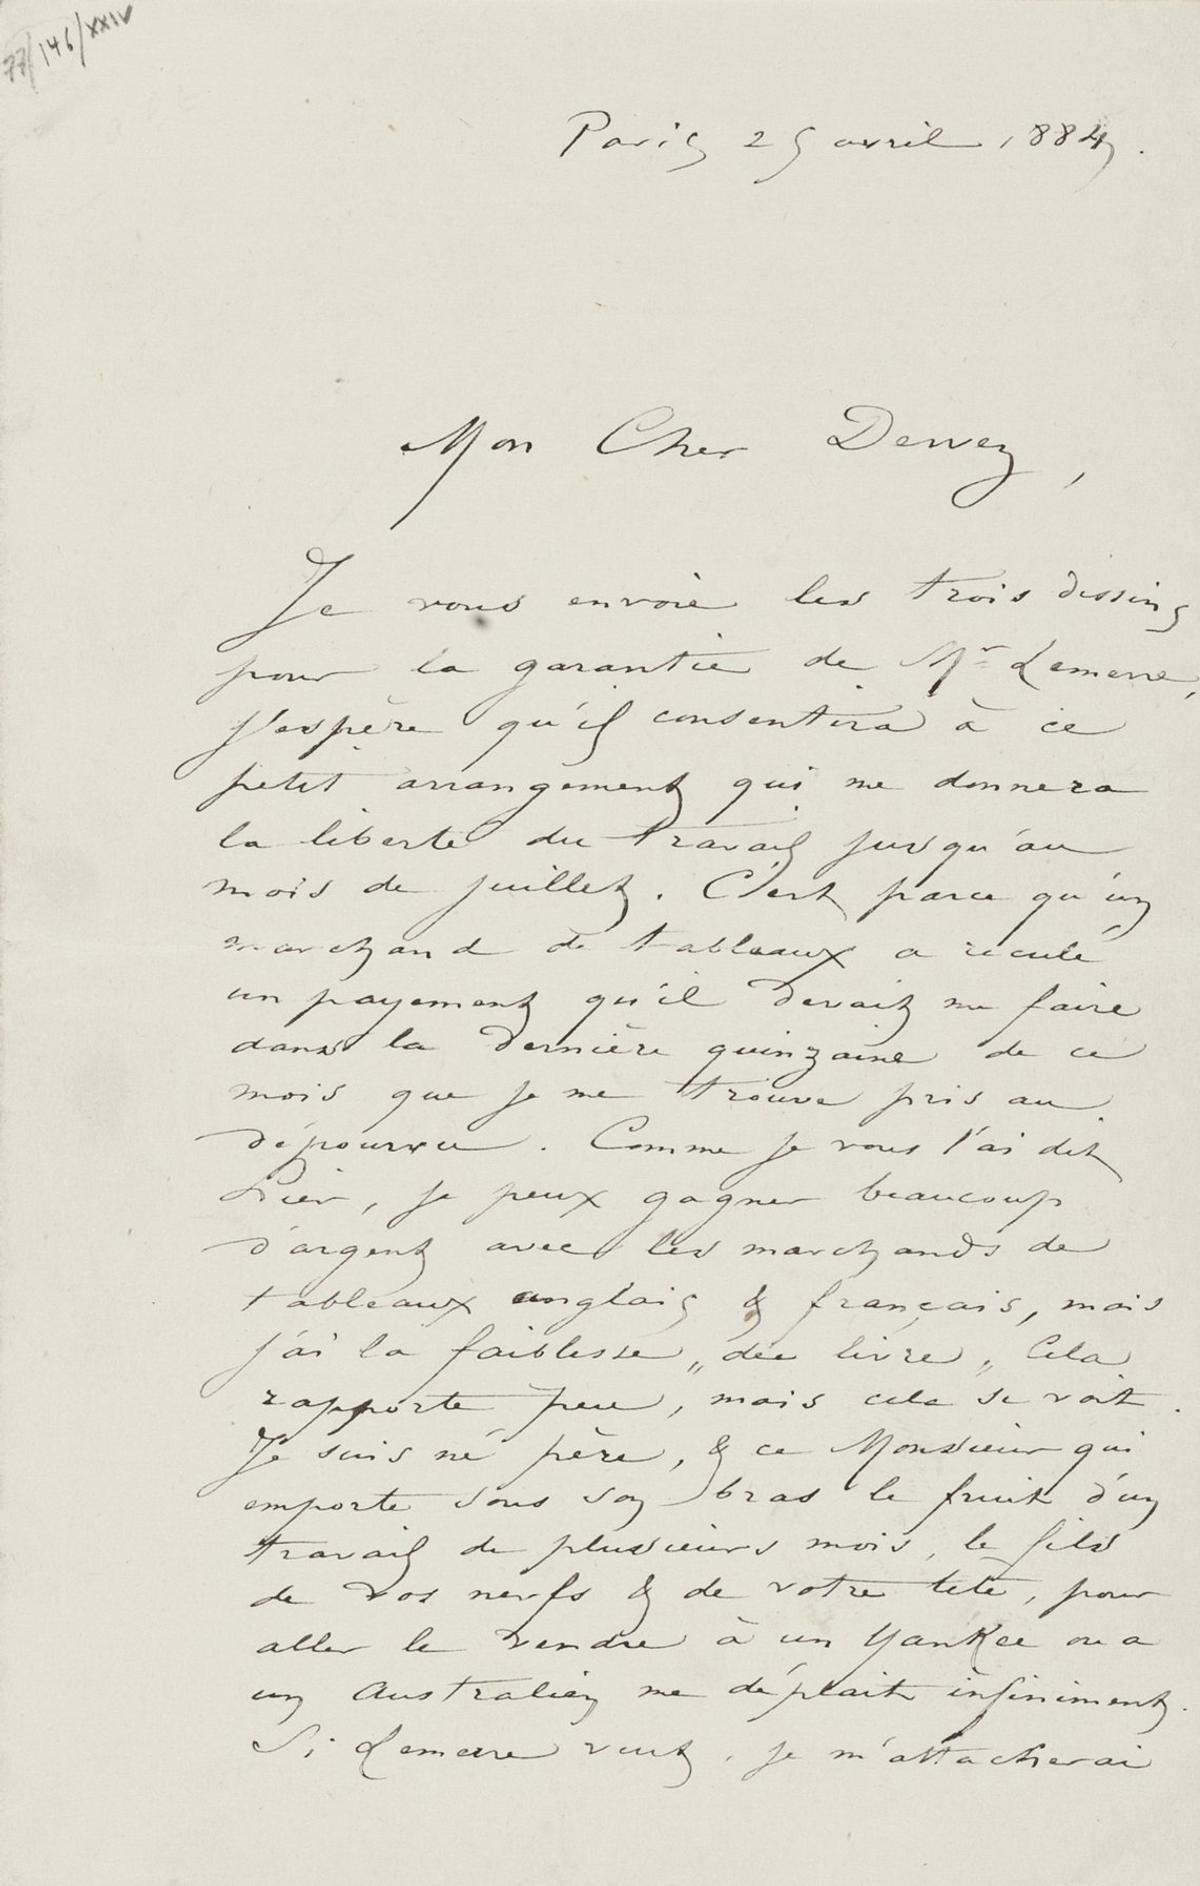 77/146/XXIV
Paris 25 avril 1884.
Mon Cher Dewez,
Je vous envoie les trois dessins
pour la garantie de Mr Lemerre,
J'espère qu'il consentira à ce
petit arrangement qui me donnera
la liberté du travail jusqu'au
mois de juillet. C'est parce qu'un
marchand de tableaux a reculé
un payement qu'il devait me faire
dans la dernière quinzaine de ce
mois que je me trouve pris au
dépourvu. Comme je vous l'ai dit
hier, je peux gagner beaucoup
d'argent avec les marchands de
tableaux anglais & français, mais
j'ai la faiblesse „du livre„ Cela
rapporte peu, mais cela se voit.
Je suis né père, & ce Monsieur qui
emporte sous son bras le fruit d'un
travail de plusieurs mois, le fils
de vos nerfs & de votre tête, pour
aller le vendre à un Yankee ou a
un Australien me déplait infiniment.
Si Lemerre veut, je m'attacherai